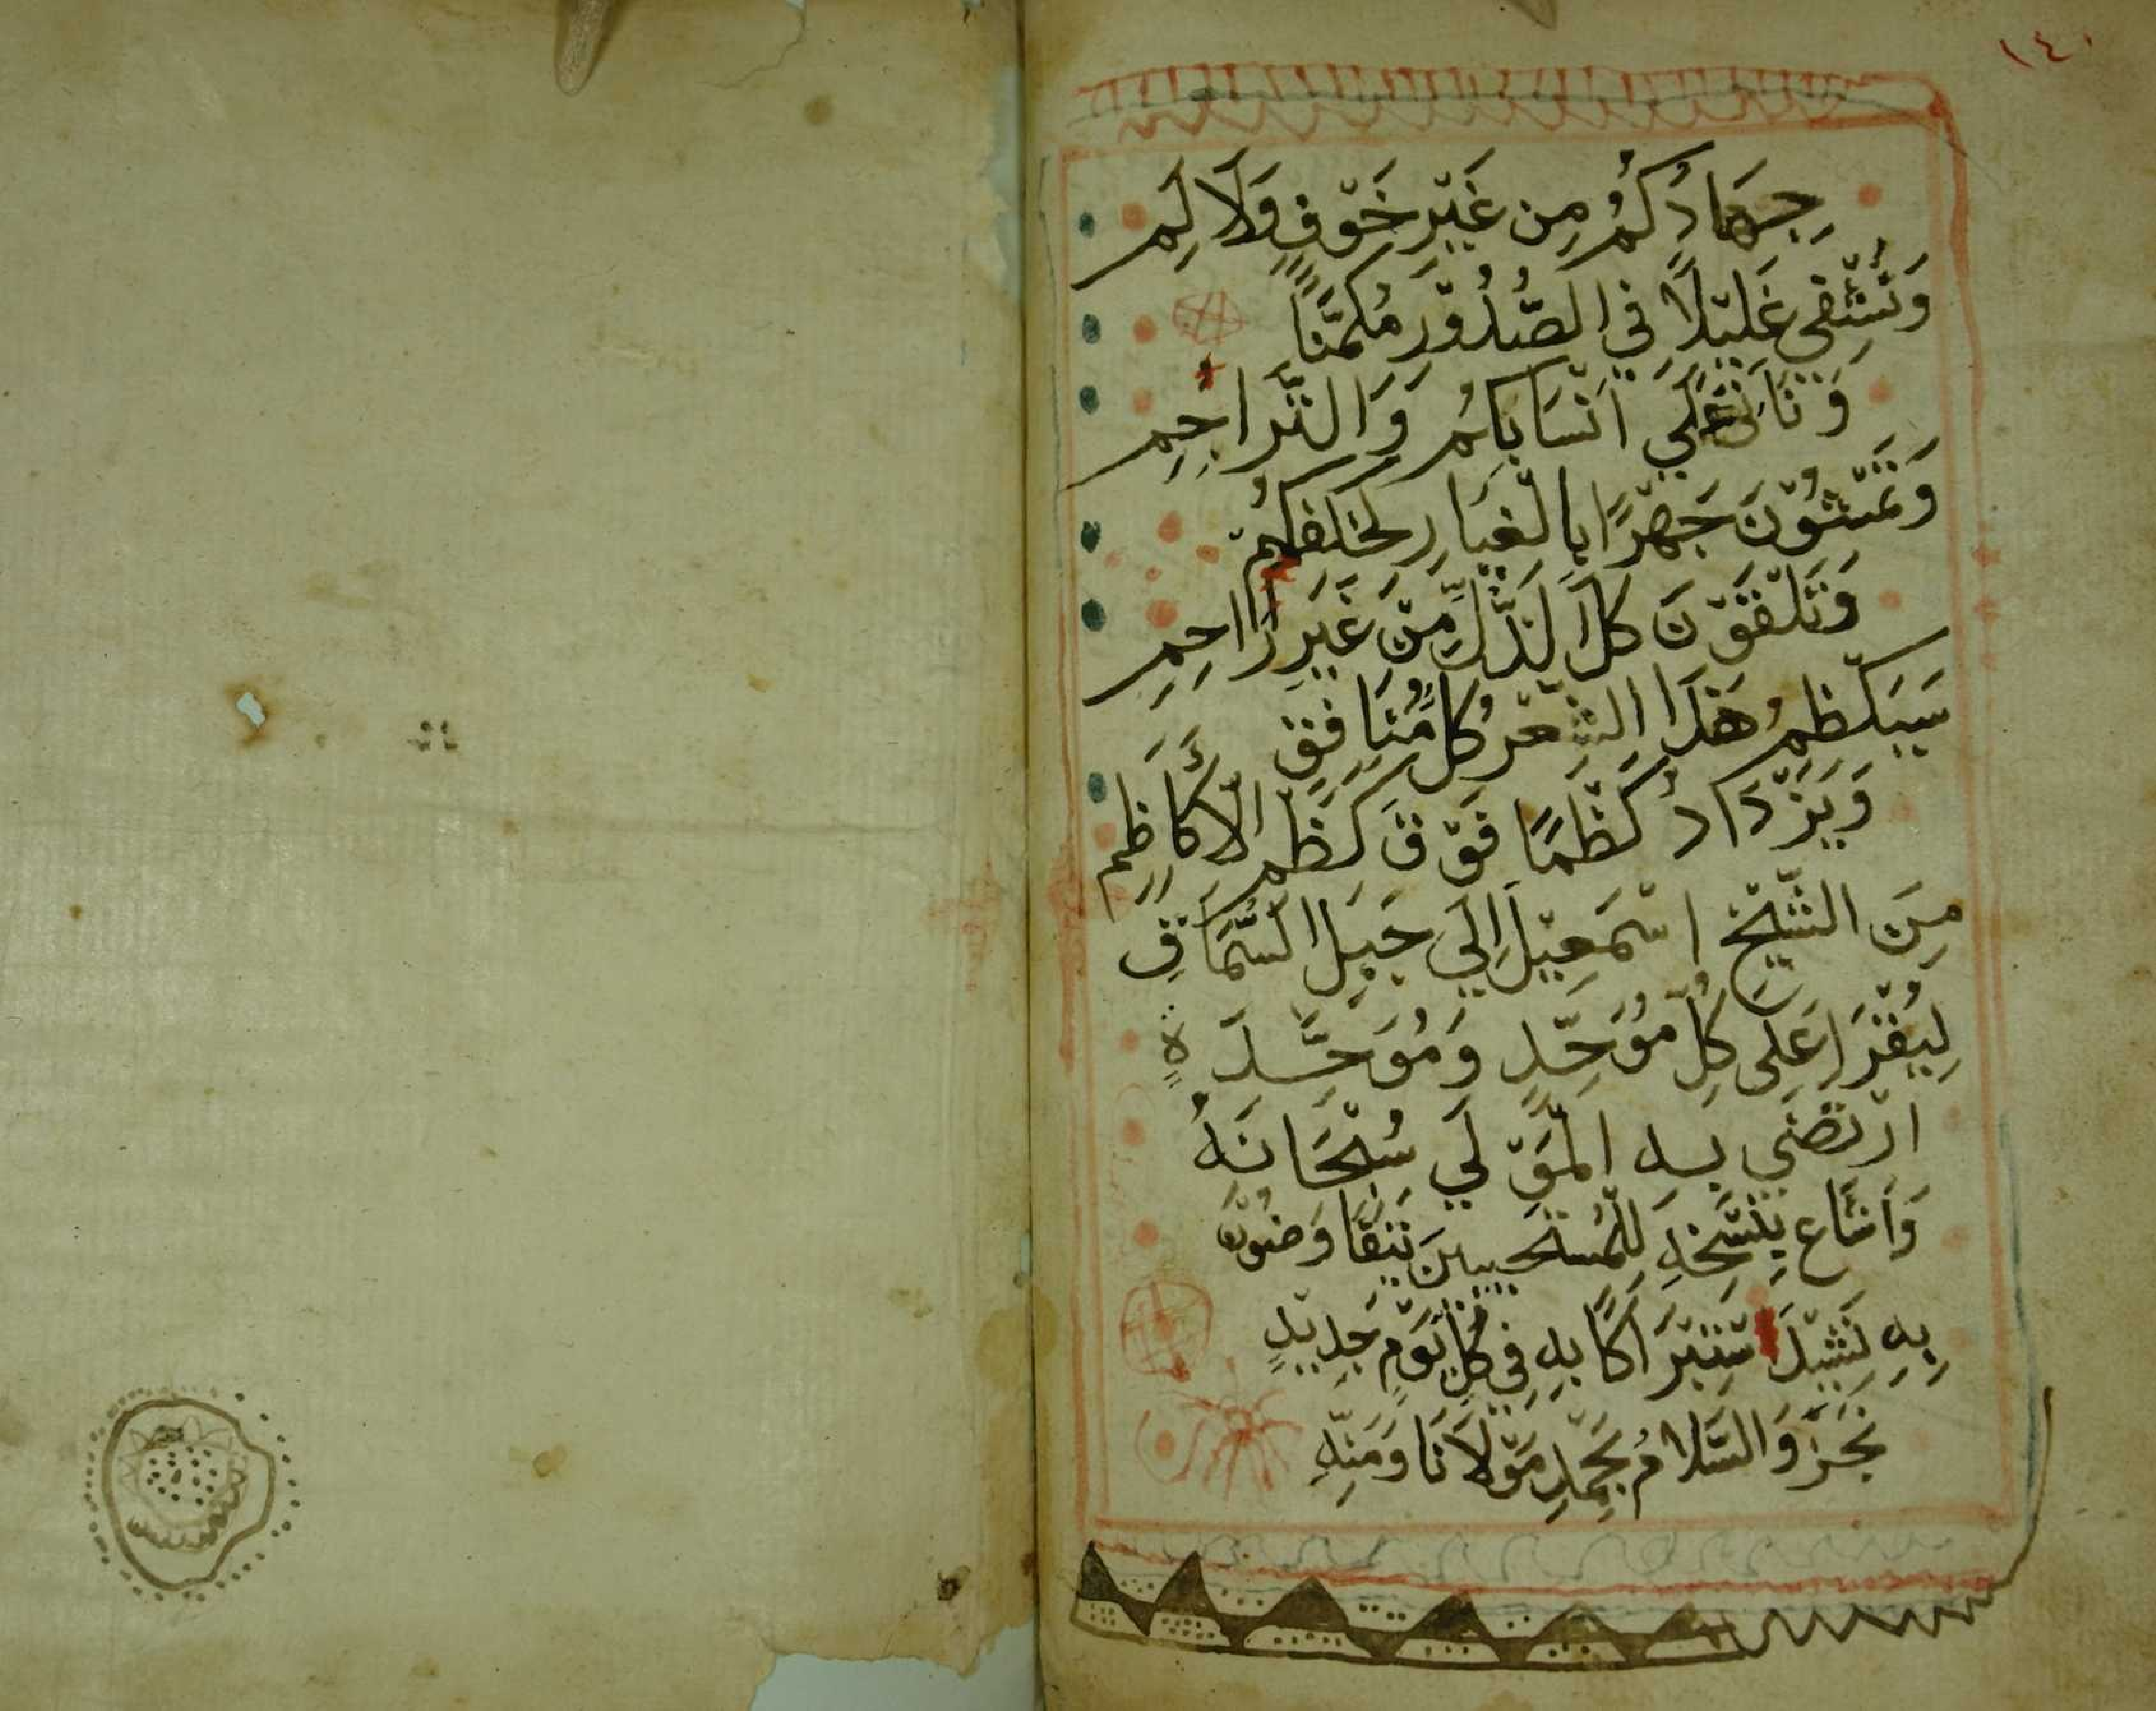 ١٤٠
جِهَادُكُمُ مِن غَيْرِ خَوْفٍ وَلَا لَم
وَتُشْفِي غَلِيْلًا فِي الصُّدُوْرِ مُكَمَّنًا
عَلَي انْسَابِكُم وَالتَّرَاجُمِ
وَتَمْشُوْنَ جَهْرًا بِالْغِيَارِ لِخَلْفِكُمْ
وَتَلْقَوْنَ كُلَّ الذُّلِّ مِنْ غَيْرِ رَاحِمِ
سَيَكْظِمُ هَذَا الشِّعْرُ كُلَّ مُنَافِقٍ
وَيَزْدَادُ كَظْمًا فَوْقَ كَظْمِ الْأَكَاظِمِ
مِنَ الشَّيْخِ اسْمَعِيْلَ اِلَي جَبَلِ السُّمَاقِ
لِيُقْرَا عَلَى كُلِّ مُوَحِّدٍ وَمُوَحِّدَةٍ
ارْتَضَي بِهِ الْمَوْلَي سُبْحَانَهُ
وَاَشَاعَ بِنَسْخِهِ لِلْمُسْتَجِيبِينَ
بِهِ تَبَرَّاكًا بِهِ فِي كُلِّ يَوْمٍ جَدِيْدٍ
نَجَزَ وَالسَّلَامُ بِحَمْدِ مَوْلَانَا وَمَنِّهِ